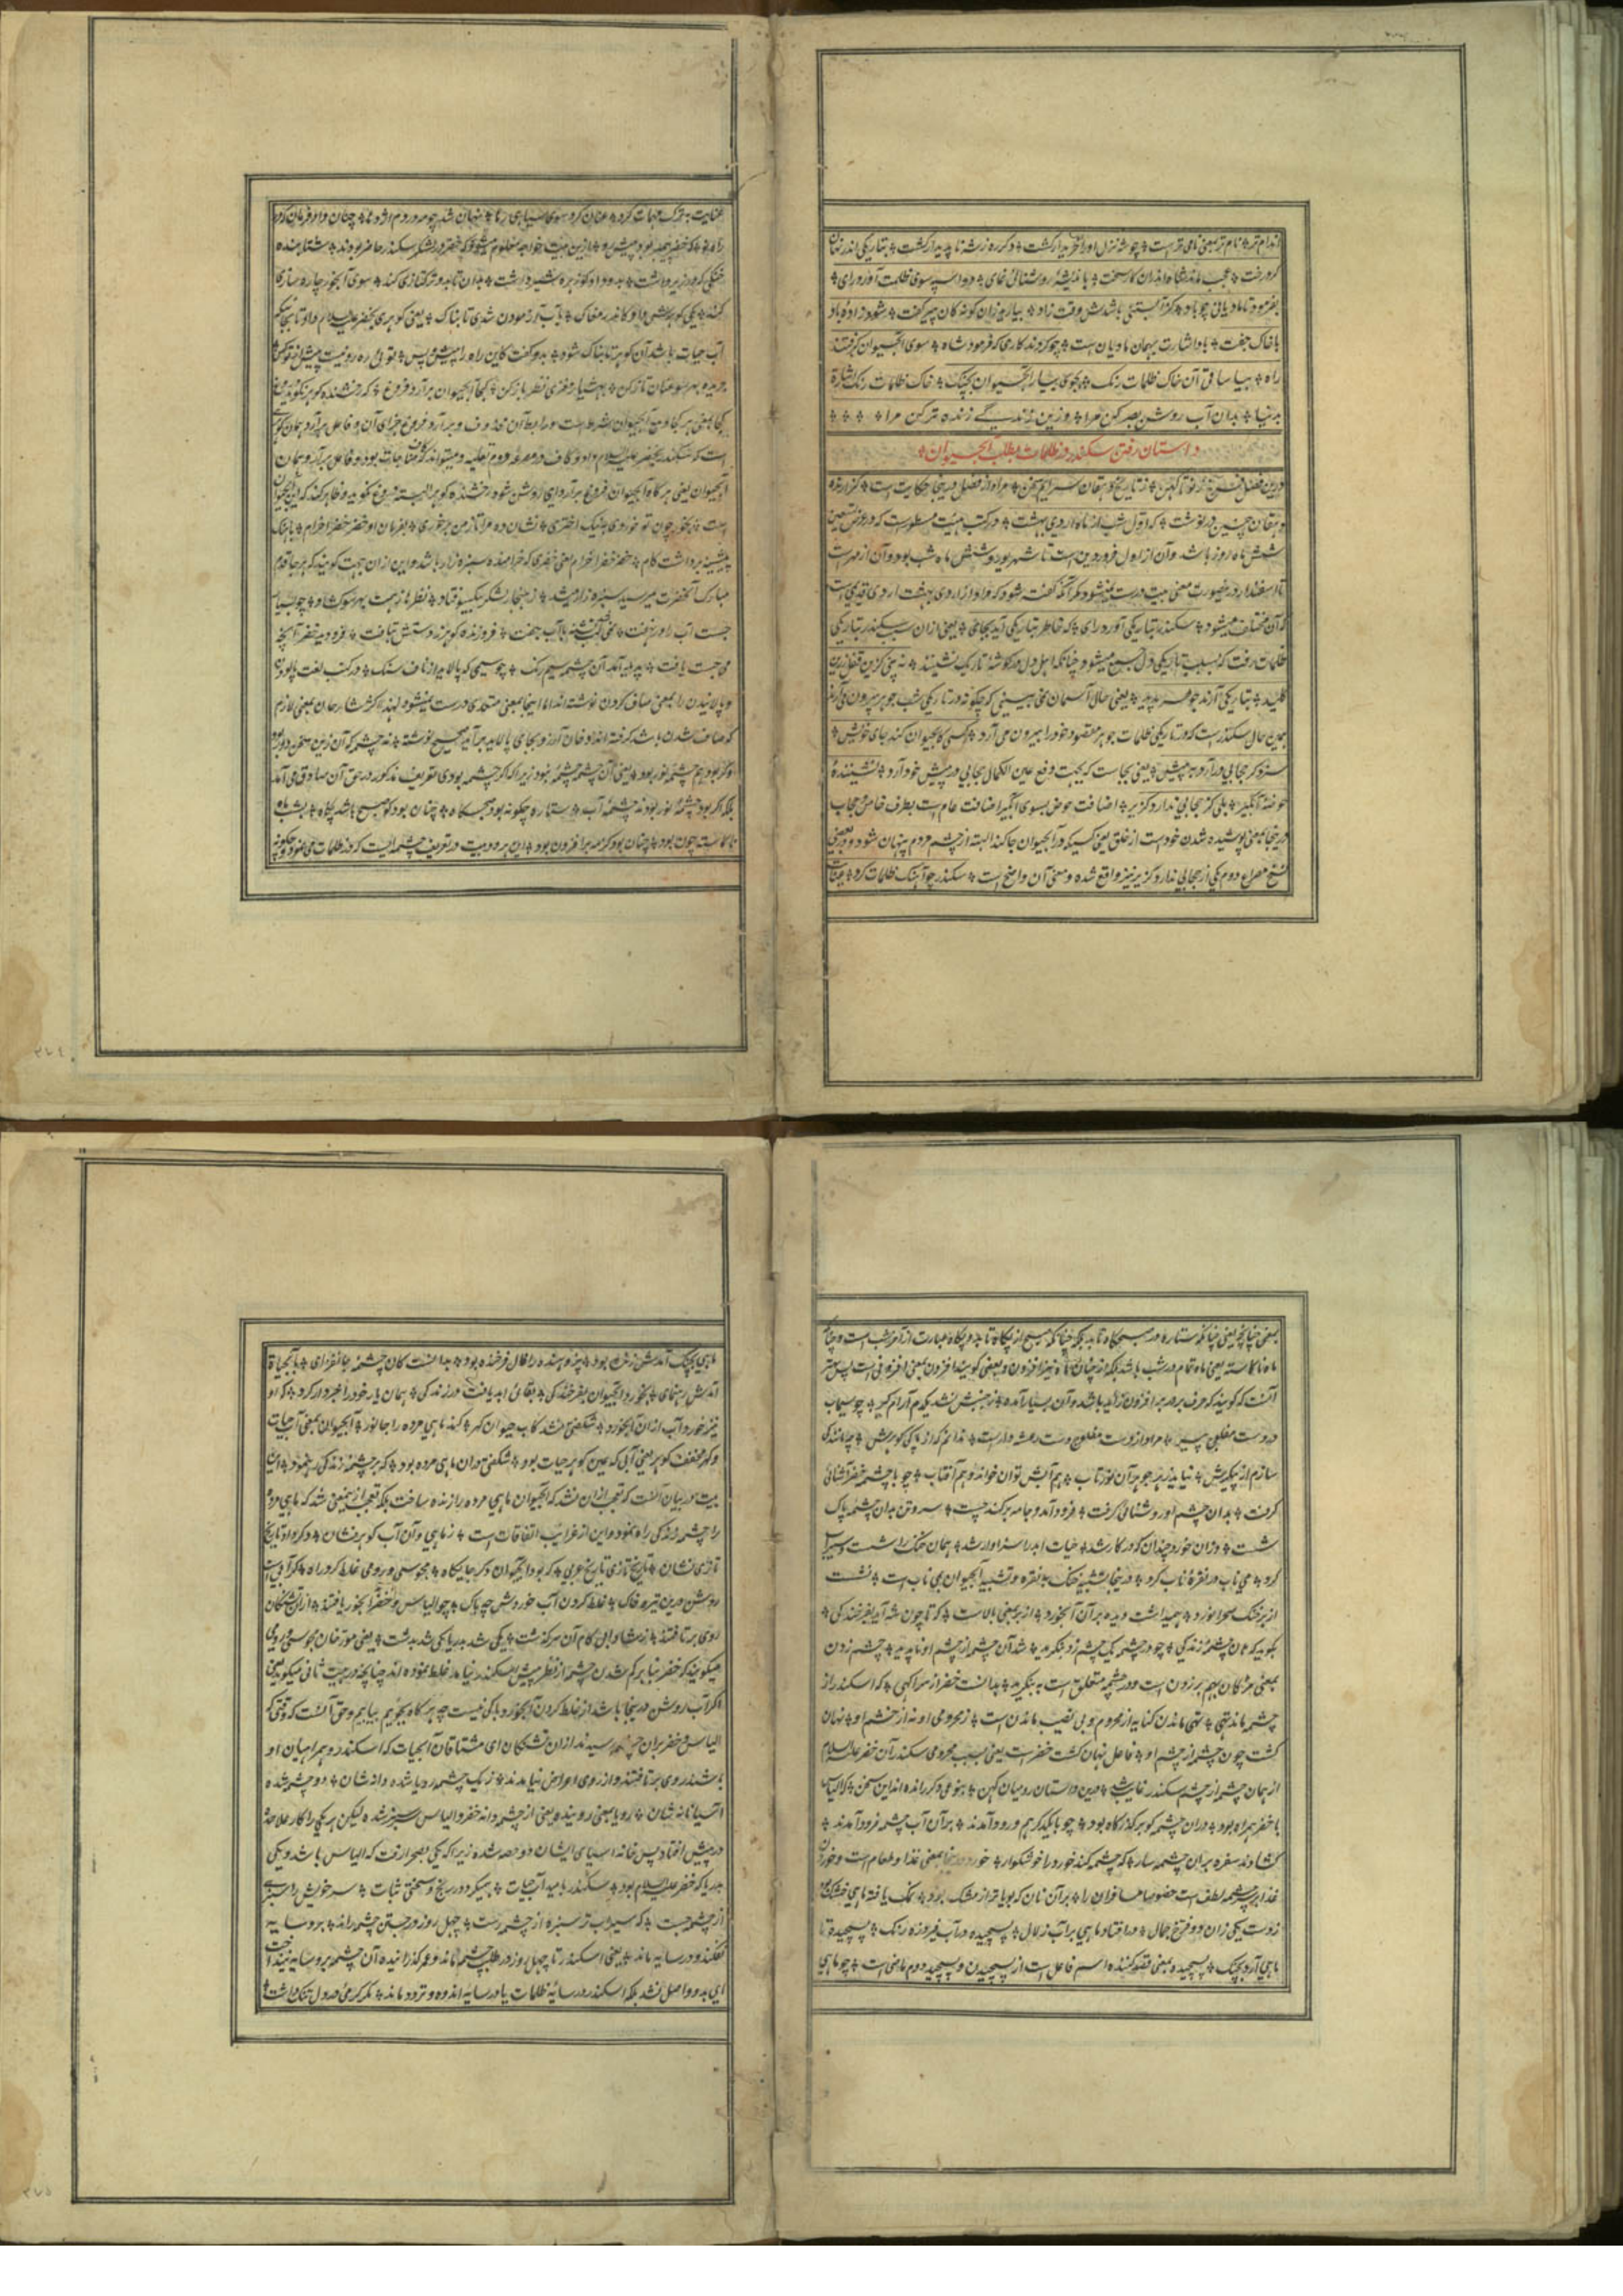 اندام تر نام تر بمعنی نامی تر است چو شه منزل او را خریدار گشت دگر ره ز شه ناپدیدار گشت بتاریکی اندر
کرد رخت عجب ماند شاه اندران کار سخت باندیشه روشنائی نمای دواسپه سوی ظلمت آورد رای
بفرمود تا مادیانی چو باد کز آبستنی باشدش وقت زاد بیارند زان گونه کان پیر گفت شود زاده باد
با خاک جفت با و اشارت بهمان مادیان است چو کردند کاری که فرمود شاه سوی آبحیوان گرفتند
راه بیا ساقی آن خاک ظلمات رنگ بجوی بیار آبحیوان بچنگ خاک ظلمات رنگ اشارة
بدنیا بدان آب روشن بصر کن مرا وزین زندگی زنده تر کن مرا
داستان رفتن سکندر در ظلمات بطلب آبحیوان
درین فصل فرخ ز نو تا کهن ز تاریخ دهقان سرایم سخن مراد از فصل درینجا حکایت است گزارنده
دهقان چنین در نوشت که اول شب از ماه اردی بهشت در کتب هیئت مسطور است که در عرض تسعین
شش ماه روز باشد و آن از اول فروردین است تا شهریور و شش ماه شب بود و آن از مهر است
تا اسفندار درینصورت معنی بیت درست نمیشود مگر آنکه گفته شود که مراد از اردی بهشت اردی قدیم است
که آن مختلف میشود سکندر بتاریکی آورد رای که خاطر بتاریکی آید بجای یعنی ازان سبب سکندر بتاریکی
ظلمات رفت که بسبب تاریکی دل جمع میشود چنانکه اهل دل در گوشه تاریک نشینند نه بینی کزین قفل زرین
کلید بتاریکی آرند جوهر پدید یعنی حالا آسمان نمی بینی که چگونه در تاریکی شب جوهر بیرون می آرند
همین حال سکندر است که در تاریکی ظلمات جوهر مقصود خود را بیرون می آرد کسی کابحیوان کند جای خویش
سزد گر حجابی در آرد به پیش یعنی بجاست که بجهت دفع عین الکمال حجابی در پیش خود آرد نشیننده
حوضه آبگیر بلی کز حجابی ندارد گزیر اضافت حوض بسوی آبگیر اضافت عام است بطرف خاص حجاب
درینجا بمعنی پوشیده شدن خود است از خلق یعنی کسیکه در آبحیوان جا کند البته از چشم مردم پنهان شود و در بعضی
نسخ مصراع دوم یکی از حجابی ندارد گزیر نیز واقع شده و معنی آن واضح است سکندر چو آهنگ ظلمات کرد عنایت
عنایت به ترک مهمات کرد عنان کرد سوی سیاهی رها نهان شد چو مه در دم اژدها چنان داد فرمان دران
راه نو که خضر پیمبر بود پیشرو ازین بیت خواجه معلوم میشود که خضر در لشکر سکندر حاضر بودند شتابنده
خنگی که در زیر داشت بدو داد کو زهره شیر داشت بدان تا بدو ترکتازی کند سوی آبخور چاره سازی
کند یکی گوهرش داد کاندر مغاک بآب آزمودن شدی تابناک یعنی گوهری بخضر علیه السلام داد تا بجائیکه
آب حیات باشد آن گوهر تابناک شود بدو گفت کاین راه را پیش و پس توئی ره رو و نیست پیش از تو کس
جریده بهر سو عنان تاز کن بهشیار مغزی نظر باز کن کجا آبحیوان برآرد فروغ که رخشنده گوهر نگوید دروغ
کجا بمعنی هر کجا و مع آبحیوان شرط است و رابط آن محذوف و برآرد فروغ جزای آن و فاعل برآرد همان گوهر
است که سکندر بخضر علیه السلام داد و کاف در مصرعه دوم تعلیلیه و میتواند که مفاجات بود و فاعل برآرد همان
آبحیوان یعنی هر گاه آبحیوان فروغ برآرد ای روشن شود رخشنده گوهر البته دروغ نگوید و ظاهر کند که این آبحیوان
است بخور چون تو خوردی به نیک اختری نشان ده مرا تا ز من بر خوری بفرمان او خضر خضرا خرام بآهنگ
پیشینه برداشت گام خضر خضرا خرام یعنی خضری که خرامنده سبزه زار باشد و این ازان جهت گویند که هر جا قدم
مبارک آنحضرت میرسید سبزه زار میشد ز هنجار لشکر بیکسو فتاد نظرها ز همت بهر سو گشاد چو بسیار
جست آب را در نهفت نمی شد لب تشنه با آب جفت فروزنده گوهر ز دستش بتافت فرو دید خضر آنچه
می جست یافت پدید آمد آن چشمه سیم رنگ چو سیمی که پالاید از ناف سنگ در کتب لغت پالودن
و پالائیدن را بمعنی صاف کردن نوشته اند اما اینجا بمعنی متعدی درست نمیشود لهذا اکثر شارحان بمعنی لازم
که صاف شدن باشد گرفته اند و خان آرزو بجای پالاید برآید صحیح نوشته نه چشمه که آن زین سخن دور بود
وگر بود هم چشمه نور بود یعنی آن چشمه چشمه نبود زیرا که اگر چشمه بودی تعریف مذکور در حق آن صادق می آمد
بلکه اگر بود چشمه نور بود نه چشمه آب ستاره چگونه بود صبحگاه چنان بود کو صبح باشد پگاه بشب ماه
ناکاسته چون بود چنان بود کز مه برافزون بود این هر دو بیت در تعریف چشمه ایست که در ظلمات می نمود و چگونه
بمعنی چنانچه یعنی چنانکه ستاره در صبحگاه تابد بلکه چنانکه صبح از پگاه تابد و پگاه عبارت از آخر شب است و چنانکه
ماه ناکاسته یعنی ماه تمام در شب باشد بلکه از چنان ماه نیز افزون و بعضی گویند افزون بمعنی افزونی است پس بهتر
آنست که گویند که حرف بر در برافزون زائد باشد و آن بسیار آمده ز جنبش نشد یکدم آرام گیر چو سیماب
در دست مفلوج پیر مراد از دست مفلوج دست رعشه دار است ندانم که از پاکی گوهرش چه مانندگی
سازم از پیکرش نیاید ز هر جوهر آن نور و تاب هم آتش توان خواند و هم آفتاب چو با چشمه خضر آشنائی
گرفت بدان چشم او روشنائی گرفت فرود آمد و جامه برکند چست سر و تن بدان چشمه پاک
شست وزان خورد چندان که در کار شد حیات ابد را سزاوار شد همان خنگ را شست و سیراب
کرد می ناب در نقره ناب کرد درینجا تشبیه خنگ به نقره و تشبیه آبحیوان بمی ناب است نشست
از بر خنگ صحرا نورد همیداشت دیده بر آن آبخورد از بر بمعنی بالاست که تا چون شه آید بفرخندگی
بگوید که هان چشمه زندگی چو در چشمه یک چشم زد بنگرید شد آن چشمه از چشم او ناپدید چشم زدن
بمعنی مژگان بهم بر زدن است و در چشمه متعلق است به بنگرید بدانست خضر از سر آگهی که اسکندر از
چشمه ماند تهی تهی ماندن کنایه از محروم و بی نصیب ماندن است ز محرومی او نه از خشم او نهان
گشت چون چشمه از چشم او فاعل نهان گشت خضر است یعنی بسبب محرومی سکندر آن خضر علیه السلام
از همان چشمه از چشم سکندر غایب شد درین داستان رومیان کهن بنوعی دگر رانده اند این سخن که الیاس
با خضر همراه بود دران چشمه کو بر گذرگاه بود چو با یکدگر هم درود آمدند بر آن آب چشمه فرود آمدند
گشادند سفره بران چشمه سار که چشمه کند خورد را خوشگوار خورد درینجا بمعنی غذا و طعام است و خوردن
غذا بر سر چشمه لطف است خصوصا مسافران را بر آن نان که بویا تر از مشک بود نمک یافته ماهی خشک بود
ز دست یکی زان دو فرخ جمال در افتاد ماهی در آب زلال پسیچیده در آب فیروزه رنگ پسیچید تا
ماهی آرد بچنگ پسیچیده بمعنی قصد کننده اسم فاعل است از پسیچیدن و پسیچید دوم ماضی است چو ماهی
ماهی بچنگ آمدش زنده بود پژوهنده را فال فرخنده بود بدانست کان چشمه جانفزای بآبحیات
آمدش رهنمای بخورد آبحیوان بفرخندگی بقای ابد یافت در زندگی همان یار خود را خبردار کرد که او
نیز خورد آب ازان آبخورد شگفتی نشد کاب حیوان گهر کند ماهی مرده را جانور آبحیوان بمعنی آب حیات
و گهر مخفف گوهر یعنی آبی که عین گوهر حیات بود شگفتی دران ماهی مرده بود که بر چشمه زندگی ره نمود این
بیت در بیان آنست که تعجب ازان نشد که آبحیوان ماهی مرده را زنده ساخت بلکه تعجب ازین معنی شد که ماهی مرده
را چشمه زندگی راه نمود و این از غرایب اتفاقات است ز ماهی و آن آب گوهر فشان دگر داد تاریخ
تازی نشان تاریخ تازی تاریخ عربی که بود آبحیوان دگر جایگاه مجوسی و رومی غلط کرد راه گر آبی است
روشن درین تیره خاک غلط کردن آب خوردش چه باک چو الیاس و خضر آبخور یافتند ازان تشنگان
روی برتافتند ز شادابی کام آن سرگذشت یکی شد بدریا یکی شد بدشت یعنی مورخان مجوسی و رومی
میگویند که خضر بنا بر گم شدن چشمه از نظر پیش سکندر نیامد غلط نموده اند چنانچه در بیت ثانی میگوید یعنی
اگر آب روشن درینجا باشد از غلط کردن آبخورد باکی نیست چه هر گاه بجوئیم بیابیم و حق آنست که وقتی که
الیاس و خضر بران چشمه رسیدند ازان تشنگان ای مشتاقان آبحیات که اسکندر و همراهیان او
باشند روی برتافتند و از روی اعراض نیامدند ز یک چشمه رویا شده دانه شان دو چشمه شده
آسیا خانه شان رویا بمعنی روینده یعنی از چشمه دانه خضر و الیاس سبز شده لیکن هر یکی را کار علاحده
در پیش افتاد پس خانه آسیای ایشان دو حصه شده زیرا که یکی بصحرا رفت که الیاس باشد و یکی
بدریا که خضر علیه السلام بود سکندر بامید آب حیات همیکرد در رنج و سختی ثبات سر خویش را سبز
از چشمه جست که سیراب تر سبزه از چشمه رست چهل روز در جستن چشمه راند برو سایه
نفکند و در سایه ماند یعنی اسکندر تا چهل روز در طلب چشمه ماند و عمر گذرانیده آن چشمه برو سایه نینداخت
ای بدو واصل نشد بلکه اسکندر در سایه ظلمات یا در سایه اندوه و تردد ماند مگر گرمی در دل تنگ داشت